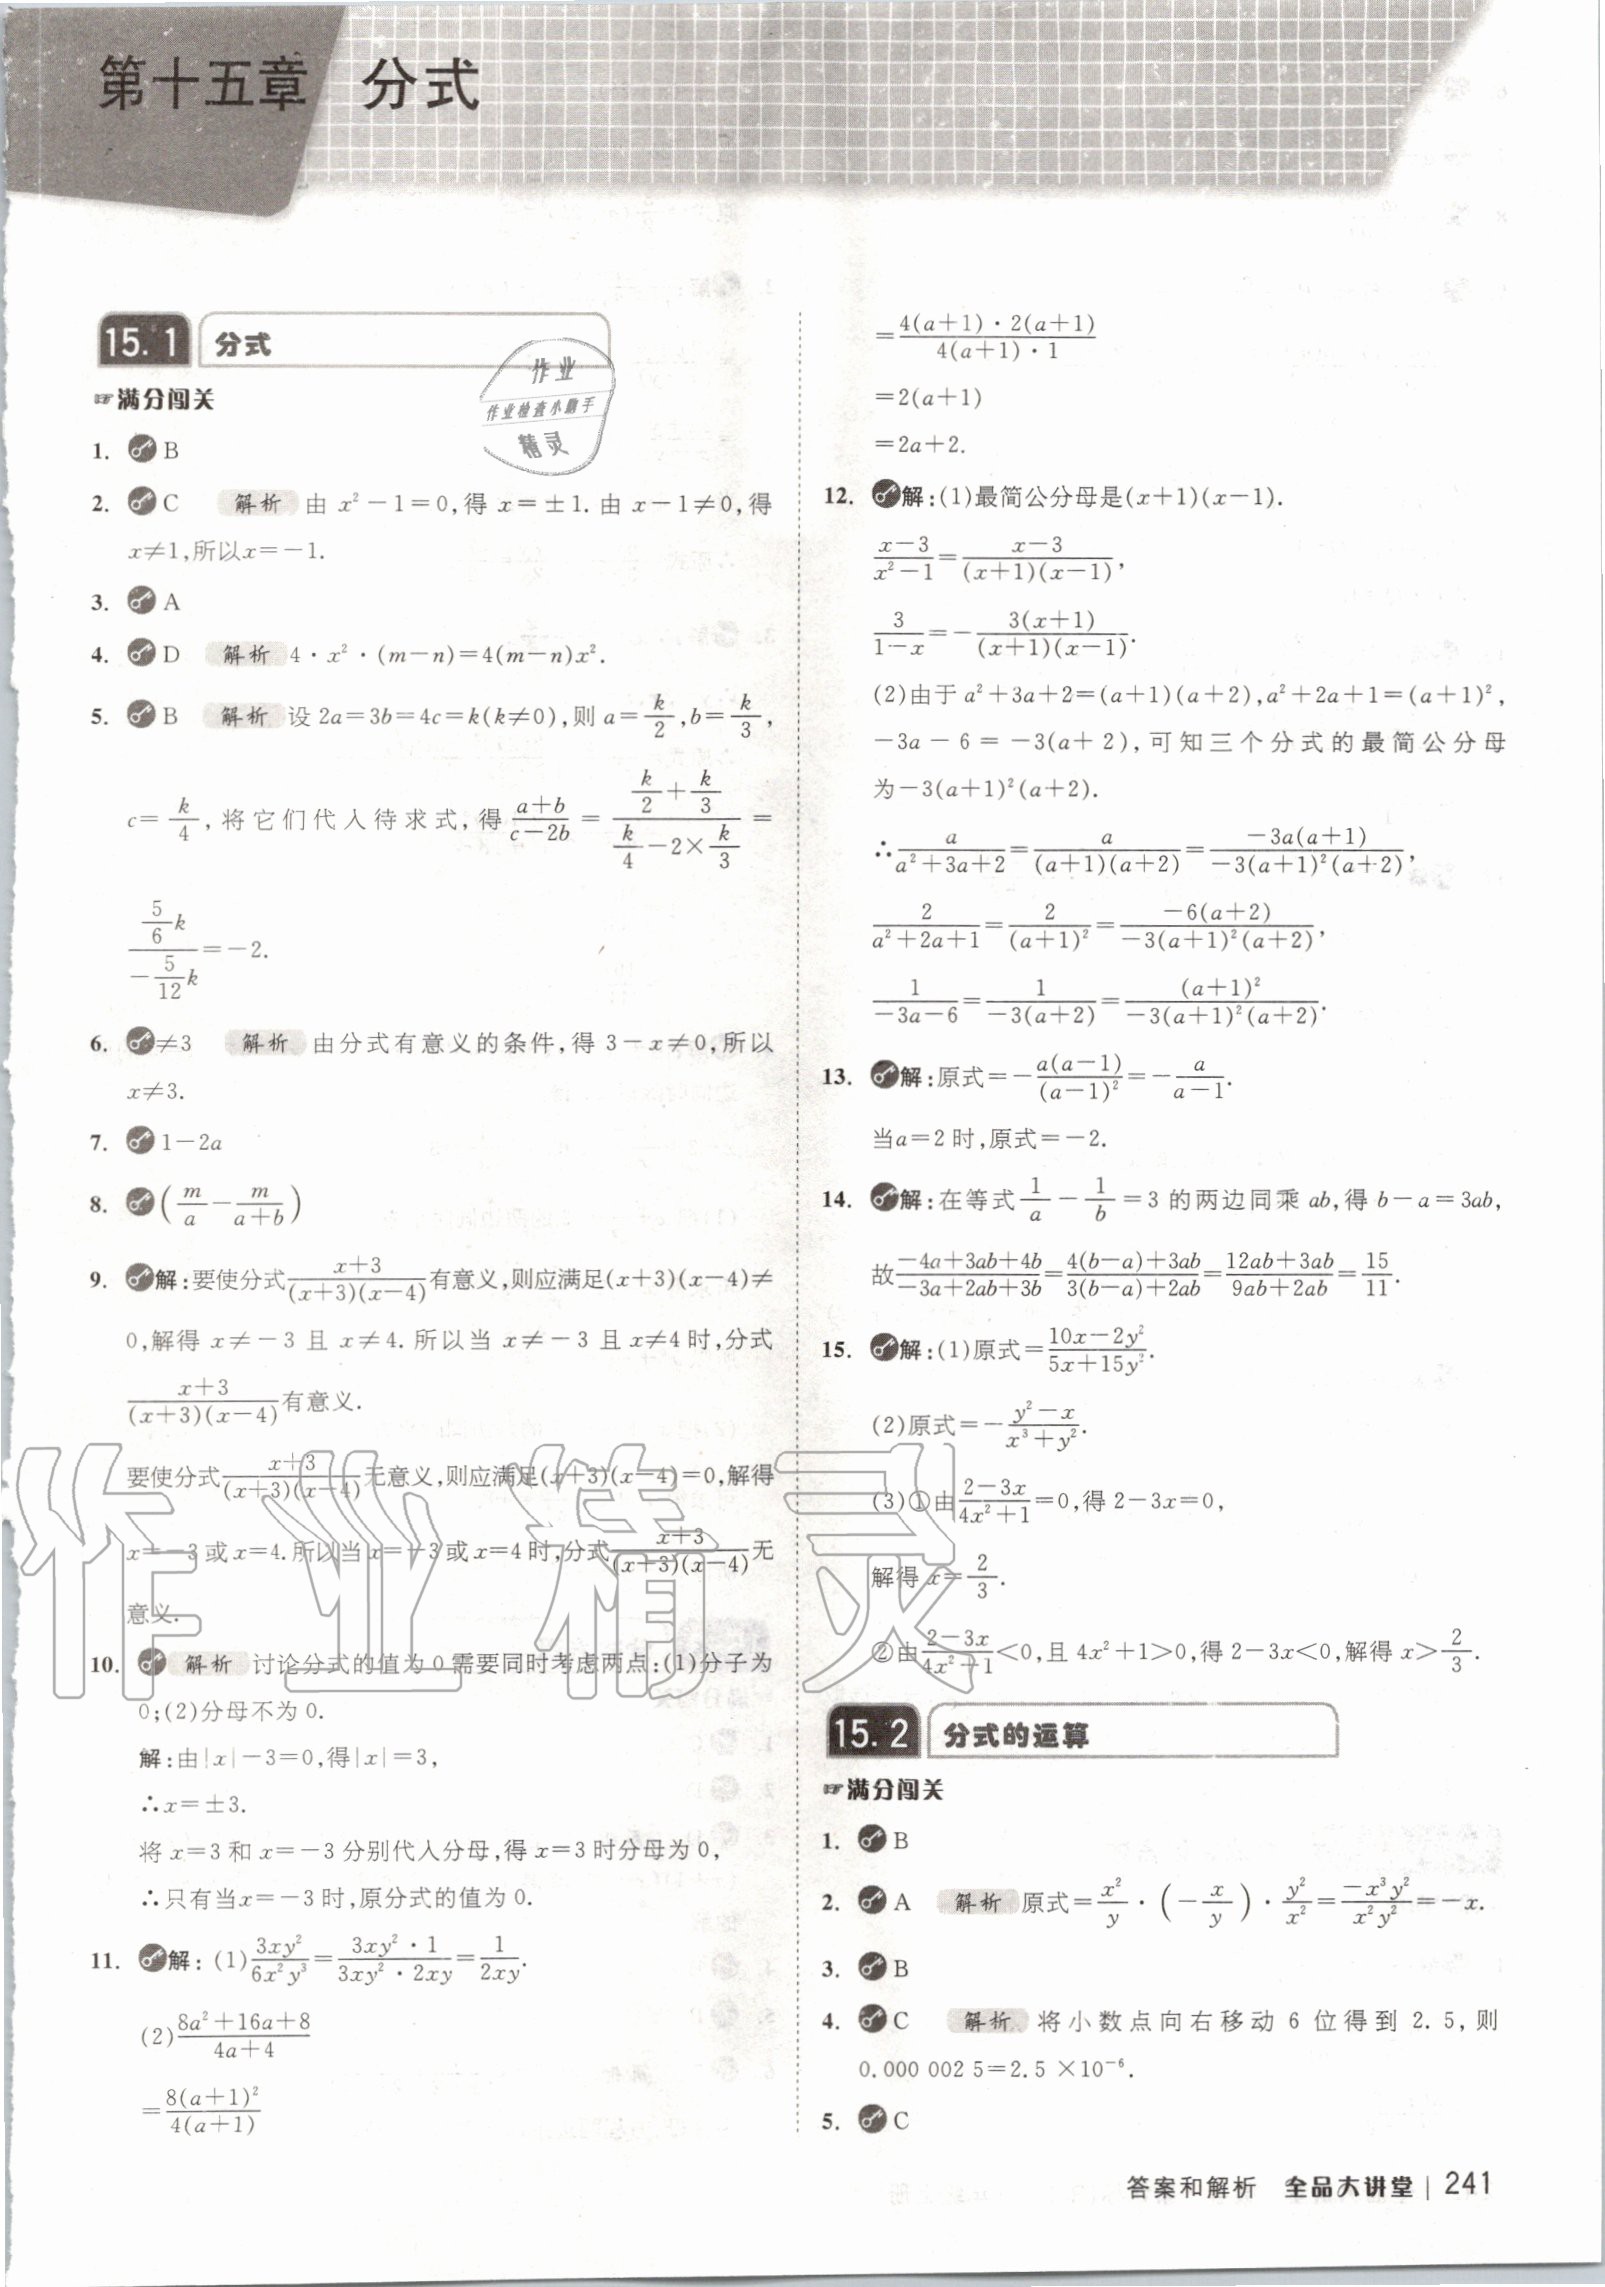 第十五章 分式
15.1 分式
作业
作业检查小助手
精灵
☞满分闯关
1. B
2. C 解析 由 x²－1＝0,得 x＝±1. 由 x－1≠0,得
x≠1,所以x＝－1.
3. A
4. D 解析 4·x²·(m－n)＝4(m－n)x².
5. B 解析 设 2a＝3b＝4c＝k(k≠0),则 a＝k/2,b＝k/3,
c＝k/4,将它们代入待求式,得(a＋b)/(c－2b)＝(k/2＋k/3)/(k/4－2×k/3)＝
(5/6 k)/(－5/12 k)＝－2.
6. ≠3 解析 由分式有意义的条件,得 3－x≠0,所以
x≠3.
7. 1－2a
8. (m/a－m/(a＋b))
9. 解:要使分式(x＋3)/((x＋3)(x－4))有意义,则应满足(x＋3)(x－4)≠
0,解得 x≠－3 且 x≠4. 所以当 x≠－3 且 x≠4 时,分式
(x＋3)/((x＋3)(x－4))有意义.
要使分式(x＋3)/((x＋3)(x－4))无意义,则应满足(x＋3)(x－4)＝0,解得
x＝－3 或 x＝4. 所以当 x＝－3 或 x＝4 时,分式(x＋3)/((x＋3)(x－4))无
意义.
10. 解析 讨论分式的值为 0 需要同时考虑两点:(1)分子为
0;(2)分母不为 0.
解:由|x|－3＝0,得|x|＝3,
∴x＝±3.
将 x＝3 和 x＝－3 分别代入分母,得 x＝3时分母为 0,
∴只有当x＝－3 时,原分式的值为 0.
11. 解: (1)3xy²/6x²y³＝(3xy²·1)/(3xy²·2xy)＝1/2xy.
(2)(8a²＋16a＋8)/(4a＋4)
＝8(a＋1)²/4(a＋1)
＝(4(a＋1)·2(a＋1))/(4(a＋1)·1)
＝2(a＋1)
＝2a＋2.
12. 解:(1)最简公分母是(x＋1)(x－1).
(x－3)/(x²－1)＝(x－3)/((x＋1)(x－1)),
3/(1－x)＝－3(x＋1)/((x＋1)(x－1)).
(2)由于 a²＋3a＋2＝(a＋1)(a＋2),a²＋2a＋1＝(a＋1)²,
－3a－6＝－3(a＋2),可知三个分式的最简公分母
为－3(a＋1)²(a＋2).
∴a/(a²＋3a＋2)＝a/((a＋1)(a＋2))＝－3a(a＋1)/(－3(a＋1)²(a＋2)),
2/(a²＋2a＋1)＝2/(a＋1)²＝－6(a＋2)/(－3(a＋1)²(a＋2)),
1/(－3a－6)＝1/(－3(a＋2))＝(a＋1)²/(－3(a＋1)²(a＋2)).
13. 解:原式＝－a(a－1)/(a－1)²＝－a/(a－1).
当a＝2 时,原式＝－2.
14. 解:在等式1/a－1/b＝3 的两边同乘 ab,得 b－a＝3ab,
故(－4a＋3ab＋4b)/(－3a＋2ab＋3b)＝(4(b－a)＋3ab)/(3(b－a)＋2ab)＝(12ab＋3ab)/(9ab＋2ab)＝15/11.
15. 解:(1)原式＝(10x－2y²)/(5x＋15y²).
(2)原式＝－(y²－x)/(x³＋y²).
(3)①由(2－3x)/(4x²＋1)＝0,得 2－3x＝0,
解得 x＝2/3.
②由(2－3x)/(4x²＋1)＜0,且 4x²＋1＞0,得 2－3x＜0,解得 x＞2/3.
15.2 分式的运算
☞满分闯关
1. B
2. A 解析 原式＝x²/y·(－x/y)·y²/x²＝－x³y²/x²y²＝－x.
3. B
4. C 解析 将小数点向右移动 6 位得到 2.5,则
0.000 002 5＝2.5×10⁻⁶.
5. C
作业精灵
答案和解析 全品大讲堂 | 241